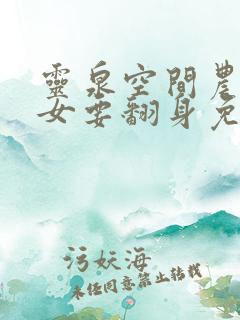 靈泉空間農
女要翻身免
污妖海
未经同意禁止转载